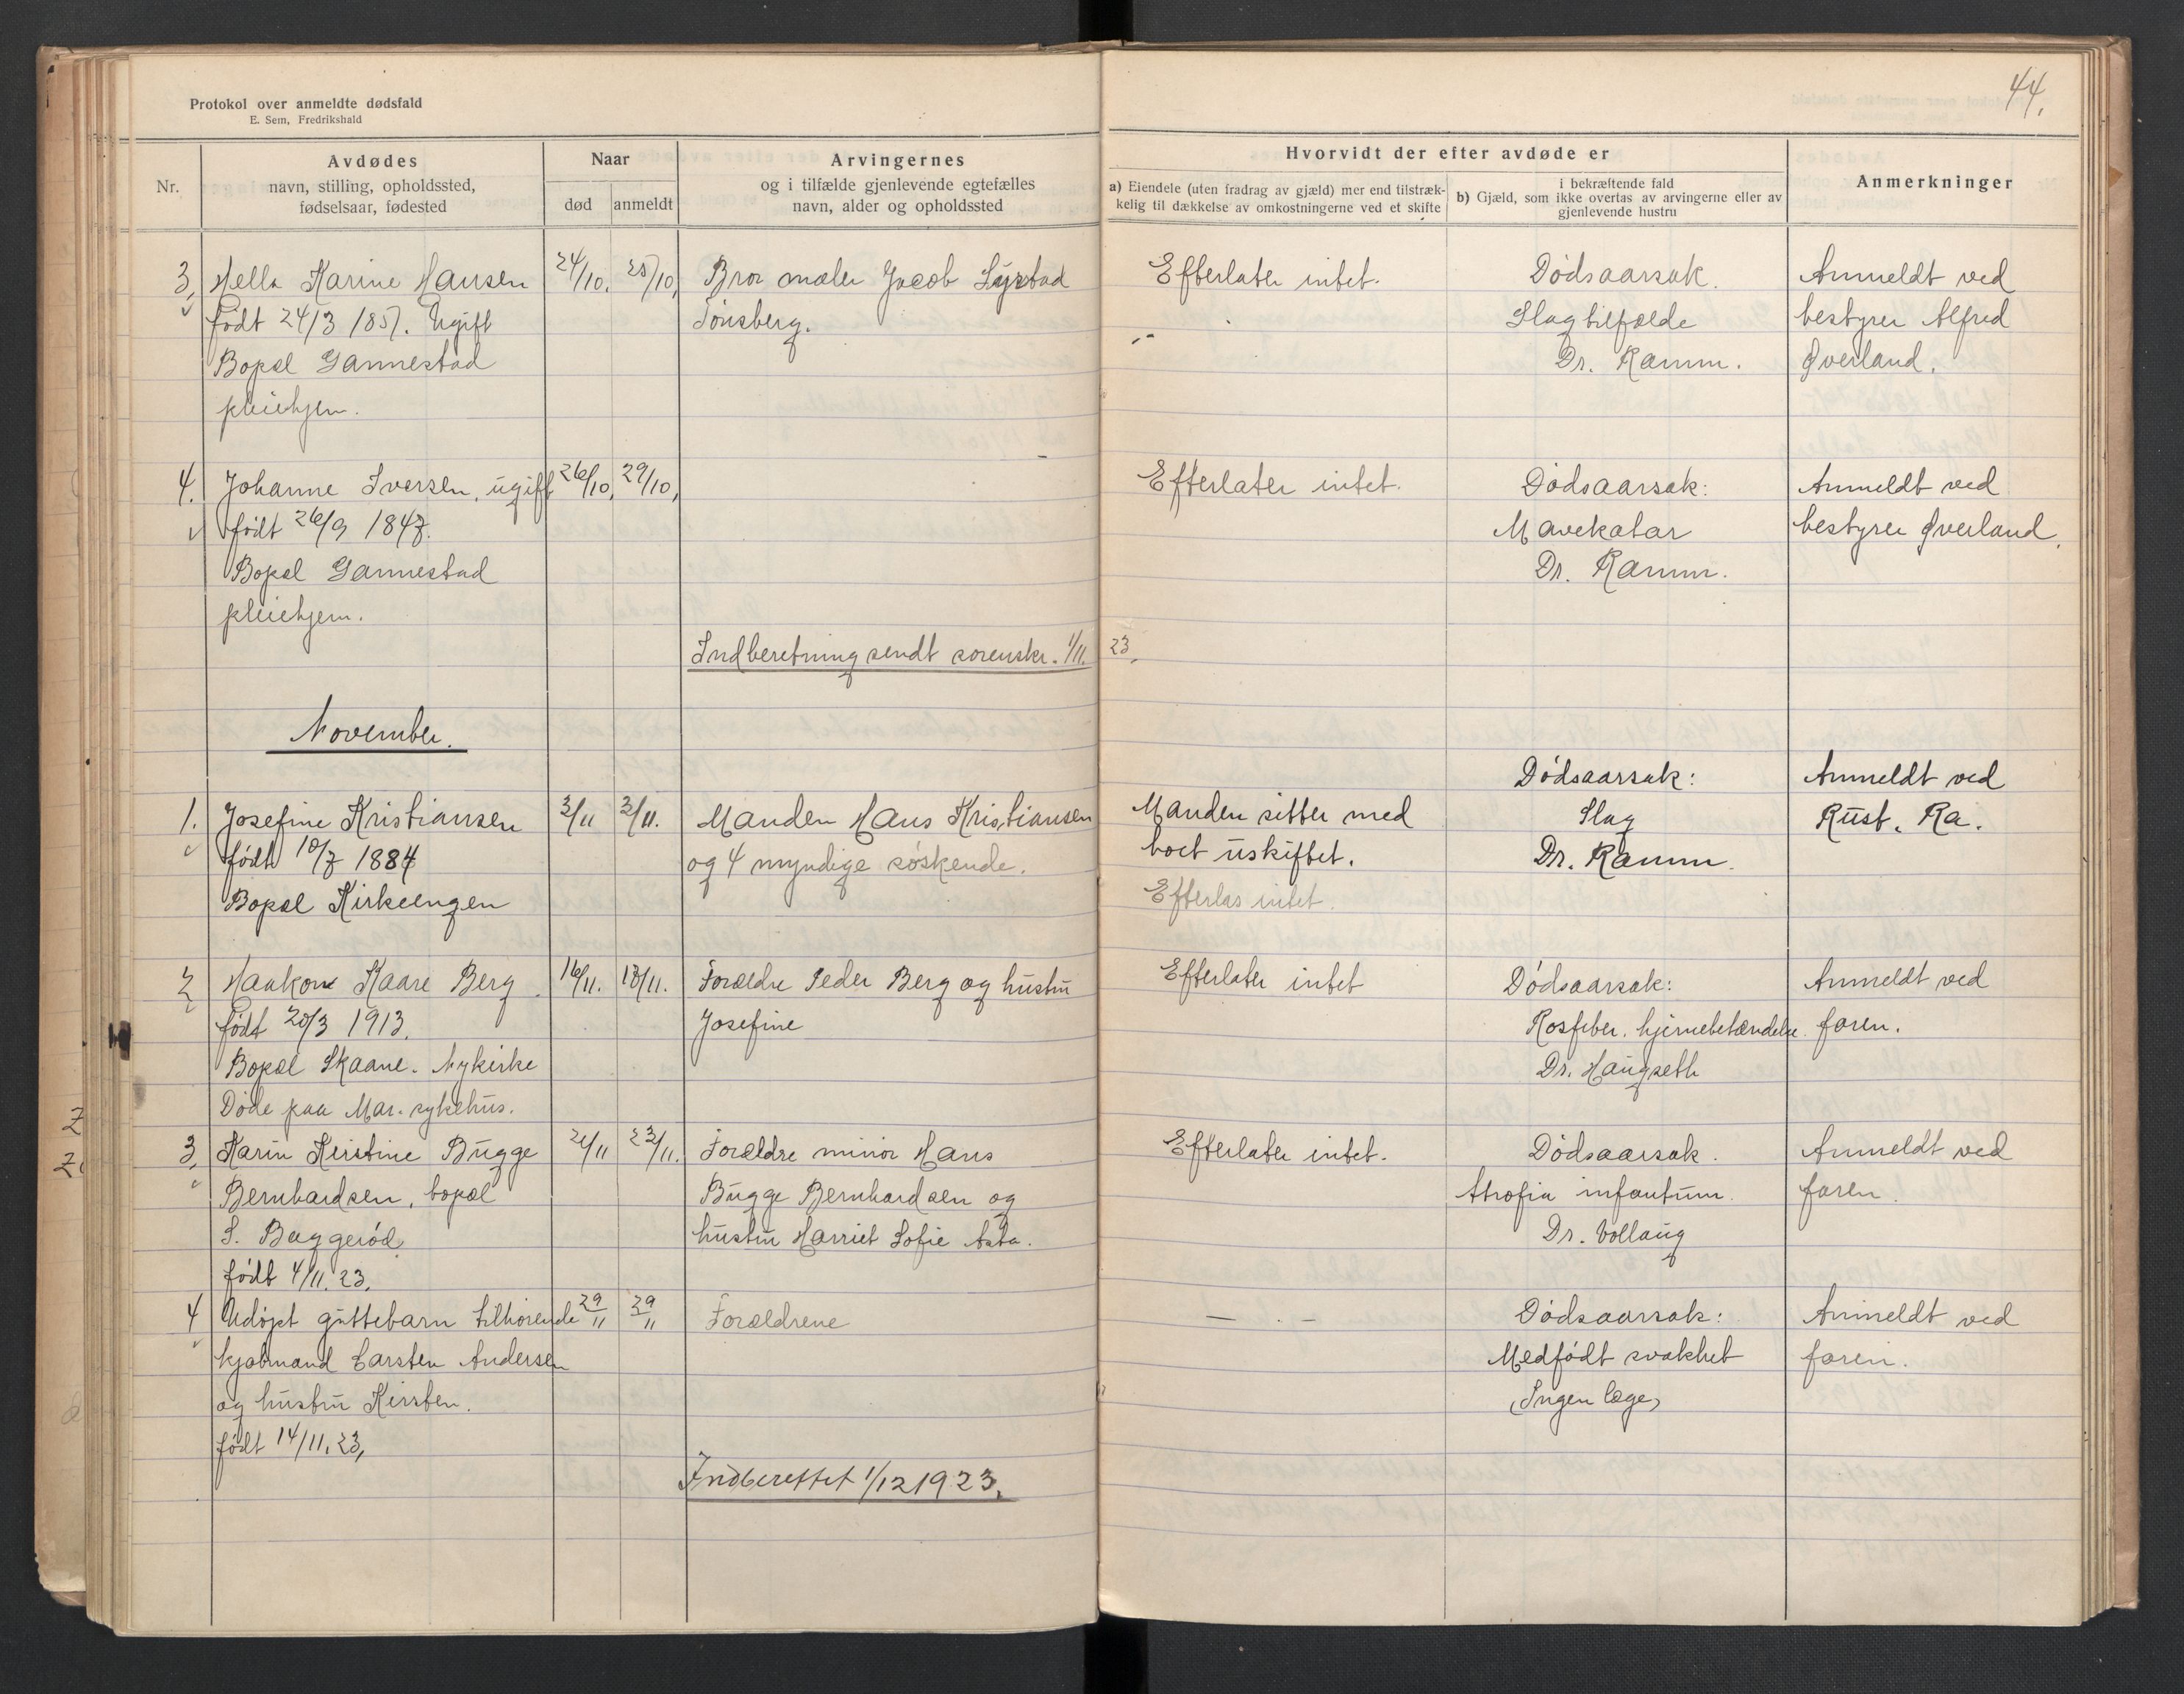 Protokol over anmeldte dødsfald
E. Sem, Fredrikshald
Nr.
Avdødes
navn, stilling, opholdssted,
fødselsaar, fødested
Naar
død
anmeldt
Arvingernes
og i tilfælde gjenlevende egtefælles
navn, alder og opholdssted
3,
Hella Karine Hansen
født 24/3 1857. Ugift
Bopæl Gannestad
pleiehjem.
24/10.
25/10,
Bror maler Jacob
Tönsberg.
4.
Johanne Iversen, ugift
født 26/9 1847.
Bopæl Gannestad
pleiehjem.
26/10,
29/10,
Indberetning sendt sorenskr. 1/11.
November.
1.
Josefine Kristiansen
født 10/7 1884
Bopæl Kirkeengen
3/11
3/11.
Manden Hans Kristiansen
og 4 myndige søskende.
2
Haakon Kaare Berg
født 20/3 1913.
Bopæl Skaane. Nykirke
Døde paa Mar. sykehus.
16/11.
18/11.
Forældre Peder Berg og hustru
Josefine
3,
Karin Kirstine Bugge
Bernhardsen, bopæl
S. Baggerød
født 4/11. 23.
21/11
23/11.
Forældre minör Hans
Bugge Bernhardsen og
hustru Harriet Sofie Asta.
4
Udøpt guttebarn tilhørende
kjøbmand Carsten Andersen
og hustru Kirsten.
født 14/11. 23,
29/11
29/11
Forældrene
Indberettet 1/12 1923.
44.
Hvorvidt der efter avdøde er
a) Eiendele (uten fradrag av gjæld) mer end tilstræk-
kelig til dækkelse av omkostningerne ved et skifte
i bekræftende fald
b) Gjæld, som ikke overtas av arvingerne eller av
gjenlevende hustru
Anmerkninger
Efterlater intet.
Dødsaarsak.
Slagtilfælde
Dr. Ramm.
Anmeldt ved
bestyrer Alfred
Øverland.
Efterlater intet.
Dødsaarsak:
Mavekatar
Dr. Ramm.
Anmeldt ved
bestyrer Øverland.
23,
Manden sitter med
boet uskiftet.
Efterlas intet.
Dødsaarsak:
Slag
Dr. Ramm.
Anmeldt ved
Rust. Ra.
Efterlater intet
Dødsaarsak:
Rosfeber. hjernebetændelse.
Dr. Haugseth
Anmeldt ved
faren.
Efterlater intet.
Dødsaarsak.
Atrofia infantum.
Dr. Vollaug
Anmeldt ved
faren.
— . -
Dødsaarsak:
Medfødt svakhet
(Ingen læge)
Anmeldt ved
faren.